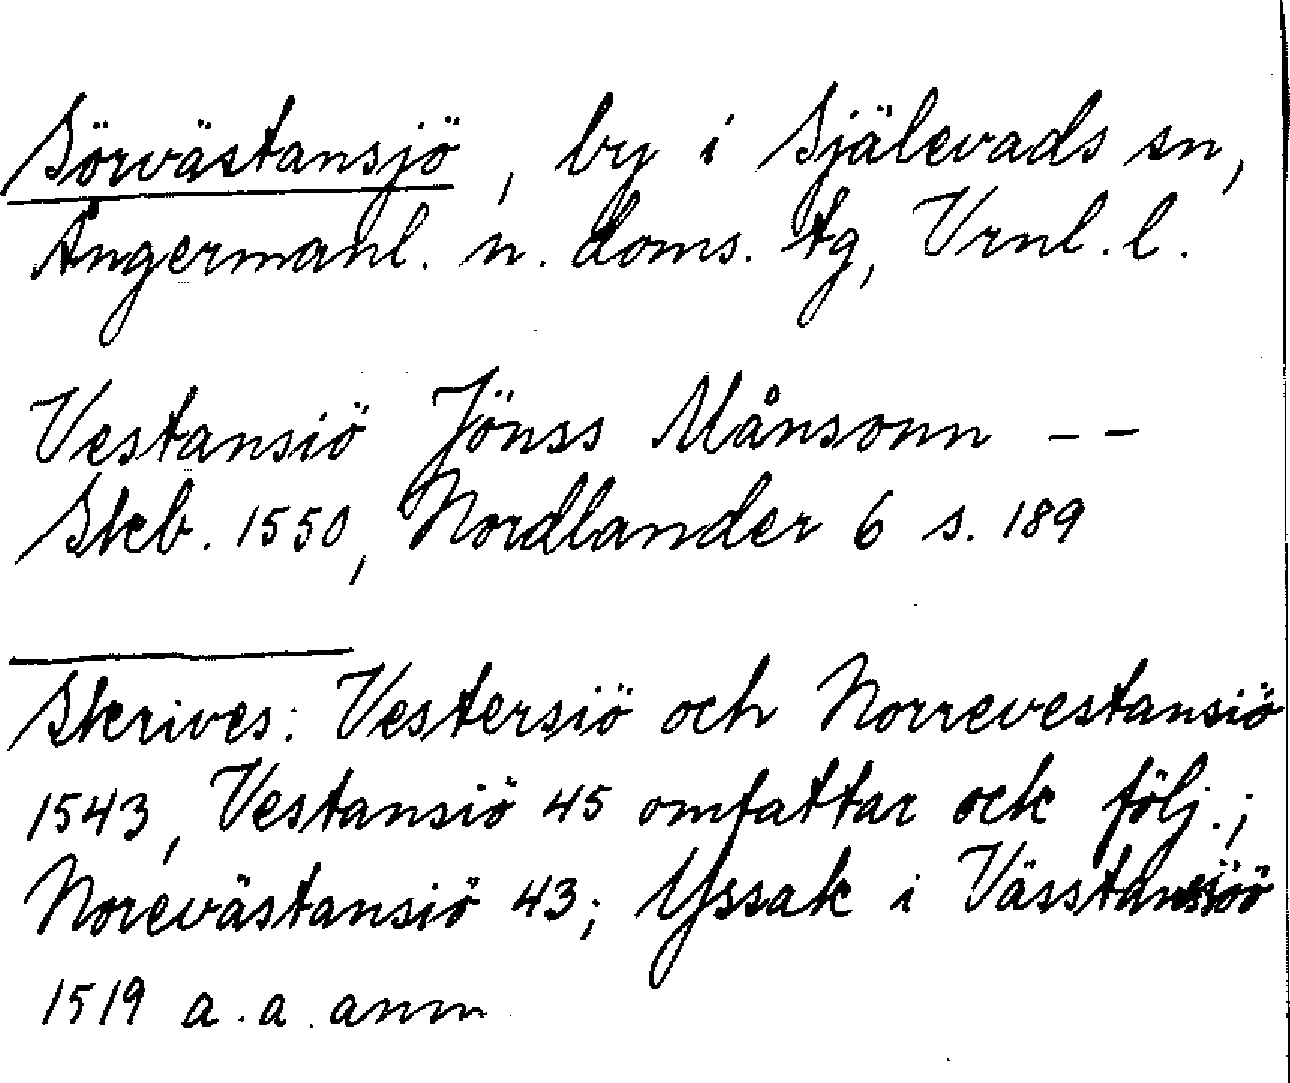 Sörvästansjö, by i Själevads sn,
Ångermanl. n. doms. tg, Vrnl. l.
Vestansiö Jönss Månsonn - -
Skeb. 1550, Nordlander 6 s. 189
Skrives: Vestersiö och Norrevestansiö
1543, Vestansiö 45 omfattar ock följ.;
Norevästansiö 43; Yssak i Västansiöö
1519 a. a. anm